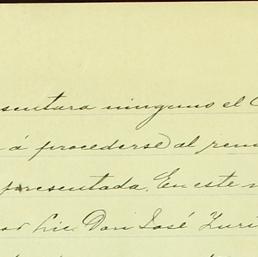 sentara ninguno el
á procederse al rem
presentada. En este
por Lic. Don José Zuri